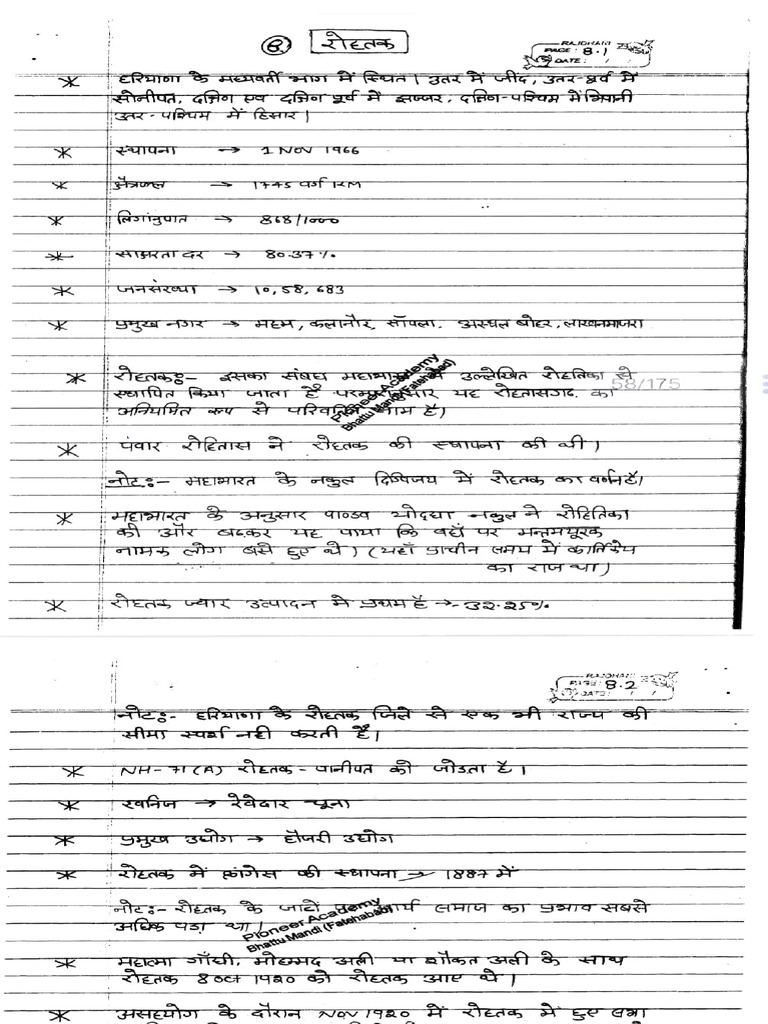 8. रोहतक
RAJDHANI
PAGE: 8.1
DATE: / /
* हरियाणा के मध्यवर्ती भाग में स्थित। उतर में जींद, उतर-पूर्व में
सोनीपत, दक्षिण एवं दक्षिण पूर्व में झज्जर, दक्षिण-पश्चिम में भिवानी
उतर-पश्चिम में हिसार।
* स्थापना → 1 NOV 1966
* क्षेत्रफल → 1745 वर्ग KM
* लिंगानुपात → 868/1000
* साक्षरता दर → 80.37%
* जनसंख्या → 10,58,683
* प्रमुख नगर → महम, कलानौर, सॉंपला, अस्थल बोहर, लाखनमाजरा
* रोहतक:- इसका संबध महाभारत में उल्लेखित रोहतिका से
58/175
स्थापित किया जाता है परम्परानुसार यह रोहतासगढ़ का
अनियमित रूप से परिवर्तित नाम है।
Pioneer Academy
Bhattu Mandi (Fatehabad)
* पंवार रोहितास ने रोहतक की स्थापना की थी।
नोट:- महाभारत के नकुल दिग्विजय में रोहतक का वर्णन है।
* महाभारत के अनुसार पाण्डव योद्धा नकुल ने रोहितिका
की और बढकर यह पाया कि वहाँ पर मन्तमयूरक
नामक लोग बसे हुए थे। (यहाँ प्राचीन समय में कार्तिकेय
का राज था)
* रोहतक ज्वार उत्पादन मे प्रथम है → 32.25%
RAJDHANI
PAGE: 8.2
DATE: / /
नोट:- हरियाणा के रोहतक जिले से एक भी राज्य की
सीमा स्पर्श नही करती हैं।
* NH-71(A) रोहतक-पानीपत को जोडता है।
* खनिज → रेवेदार चूना
* प्रमुख उधोग → हौजरी उधोग
* रोहतक में कांग्रेस की स्थापना → 1887 में
नोट:- रोहतक के जाटों आर्य समाज का प्रभाव सबसे
अधिक पडा था।
Pioneer Academy
Bhattu Mandi (Fatehabad)
* महात्मा गाँधी, मोहम्मद अली या शौकत अली के साथ
रोहतक 8 oct 1920 को रोहतक आए थे।
* असहयोग के दौरान NOV 1920 में रोहतक में हुए